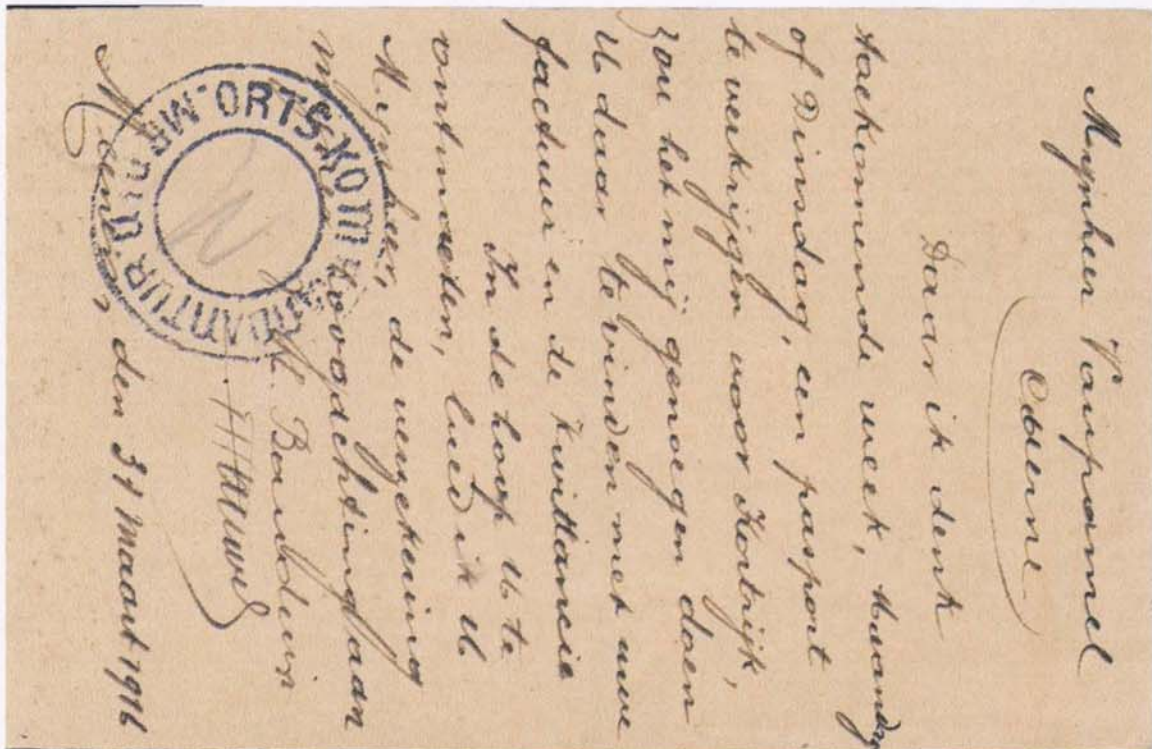 Mijnheer Vanpamel
Daar ik denk
aankomende week, Maandag
of Dinsdag, een pasport
te verkrijgen voor Kortrijk,
zou het mij genoegen doen
U daar te vinden met uwe
factuur en de kwittancie
In de hoop U te
ontmoeten, bied ik U
Mijnheer, de verzekering
mijner hoogachting aan
den 31 Maart 1916
ORTS-KOMMANDANTUR